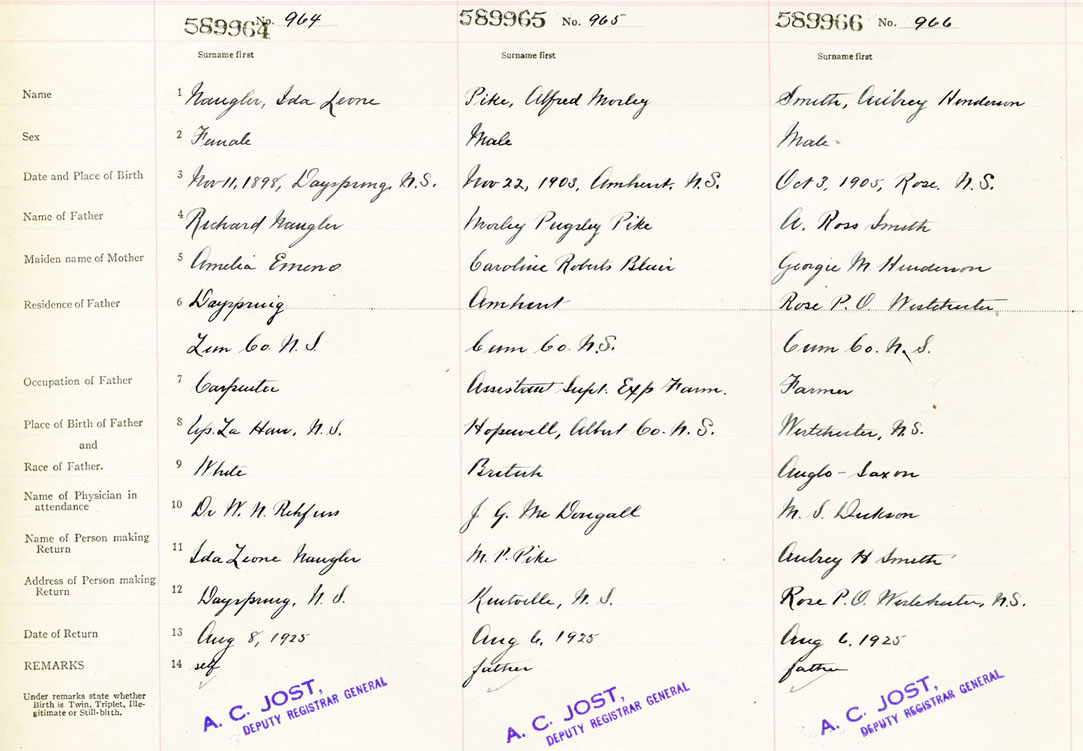 589964 No. 964 589965 No. 965 589966 No. 966
Surname first Surname first Surname first
Name 1 Naugler, Ida Leone Pike, Alfred Morley Smith, Aubrey Henderson
Sex 2 Female Male Male
Date and Place of Birth 3 Nov 11, 1898, Dayspring, N.S. Nov 22, 1903, Amherst, N.S. Oct 3, 1905, Rose, N.S.
Name of Father 4 Richard Naugler Morley Pugsley Pike A. Ross Smith
Maiden name of Mother 5 Amelia Emeno Caroline Roberts Blair Georgie M. Henderson
Residence of Father 6 Dayspring Amherst Rose P.O. Westchester
Lun Co. N.S. Cum Co. N.S. Cum Co. N.S.
Occupation of Father 7 Carpenter Assistant Supt. Exp Farm. Farmer
Place of Birth of Father 8 La Have, N.S. Hopewell, Albert Co. N.S. Westchester, N.S.
and
Race of Father. 9 White British Anglo-Saxon
Name of Physician in
attendance 10 Dr W. N. Rehfuss J. G. McDougall M. S. Dickson
Name of Person making
Return 11 Ida Leone Naugler M. P. Pike Aubrey H Smith
Address of Person making
Return 12 Dayspring, N.S. Kentville, N.S. Rose P.O. Westchester, N.S.
Date of Return 13 Aug 8, 1925 Aug 6, 1925 Aug 6, 1925
REMARKS 14 self father father
Under remarks state whether
Birth is Twin, Triplet, Ille-
gitimate or Still-birth.
A. C. JOST, A. C. JOST, A. C. JOST,
DEPUTY REGISTRAR GENERAL DEPUTY REGISTRAR GENERAL DEPUTY REGISTRAR GENERAL